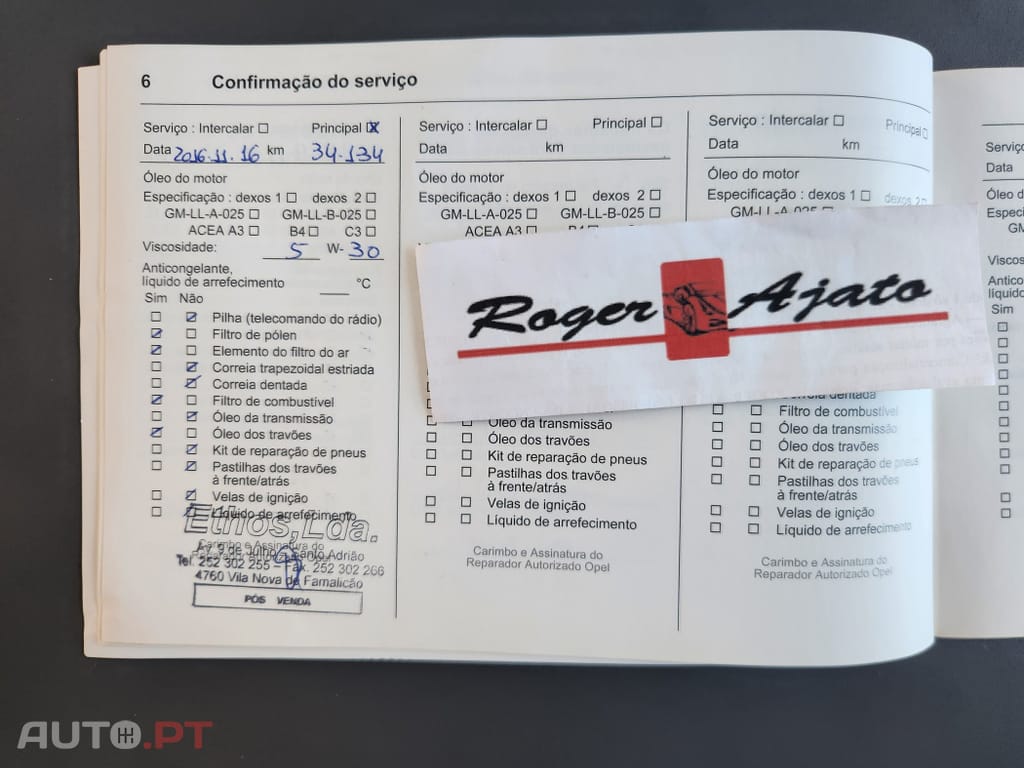 6 Confirmação do serviço
Serviço : Intercalar ☐ Principal ☒
Data 2016.11.16 km 34.134
Óleo do motor
Especificação : dexos 1 ☐ dexos 2 ☐
GM-LL-A-025 ☐ GM-LL-B-025 ☐
ACEA A3 ☐ B4 ☐ C3 ☐
Viscosidade: 5 W- 30
Anticongelante,
líquido de arrefecimento ____ °C
Sim Não
☐ ☑ Pilha (telecomando do rádio)
☑ ☐ Filtro de pólen
☑ ☐ Elemento do filtro do ar
☐ ☑ Correia trapezoidal estriada
☐ ☑ Correia dentada
☑ ☐ Filtro de combustível
☐ ☑ Óleo da transmissão
☑ ☐ Óleo dos travões
☐ ☑ Kit de reparação de pneus
☐ ☑ Pastilhas dos travões
à frente/atrás
☐ ☑ Velas de ignição
☐ ☑ Líquido de arrefecimento
Ethos, Lda.
Carimbo e Assinatura do
Reparador Autorizado Opel
Av. 9 de Julho - Santo Adrião
Tel. 252 302 255 - Fax. 252 302 266
4760 Vila Nova de Famalicão
PÓS VENDA
Serviço : Intercalar ☐ Principal ☐
Data km
Óleo do motor
Especificação : dexos 1 ☐ dexos 2 ☐
GM-LL-A-025 ☐ GM-LL-B-025 ☐
ACEA A3 ☐ B4 ☐ C3 ☐
☐ ☐ Óleo da transmissão
☐ ☐ Óleo dos travões
☐ ☐ Kit de reparação de pneus
☐ ☐ Pastilhas dos travões
à frente/atrás
☐ ☐ Velas de ignição
☐ ☐ Líquido de arrefecimento
Carimbo e Assinatura do
Reparador Autorizado Opel
Serviço : Intercalar ☐ Principal ☐
Data km
Óleo do motor
Especificação : dexos 1 ☐ dexos 2 ☐
GM-LL-A-025 ☐
Roger Ajato
Correia dentada
☐ ☐ Filtro de combustível
☐ ☐ Óleo da transmissão
☐ ☐ Óleo dos travões
☐ ☐ Kit de reparação de pneus
☐ ☐ Pastilhas dos travões
à frente/atrás
☐ ☐ Velas de ignição
☐ ☐ Líquido de arrefecimento
Carimbo e Assinatura do
Reparador Autorizado Opel
Data
Sim
AUTO.PT